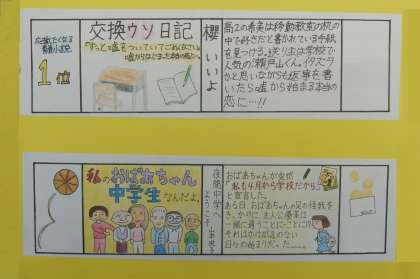 応援したくなる
青春小説
1位
交換ウソ日記
「ずっと嘘をついていてごめんなさい」
嘘からはじまった
櫻いいよ
高2の希美は移動教室の机
の中で「好きだ」と書かれている手紙
を見つける。送り主は学校で
人気の瀬戸山くん。イタズラ
かと思いながらも返事を書
いたら嘘から始まる本当の
恋に…!!
私のおばあちゃん
中学生なんだよ。
夜間中学へ
ようこそ
山本悦子
おばあちゃんが突然
「私も4月から学校だから」
と宣言した。
ある日、おばあちゃんの足の怪我を
きっかけに、主人公優菜は
一緒に通うことに…ことに!?
それはかけがえのない
日々の始まりだった……。